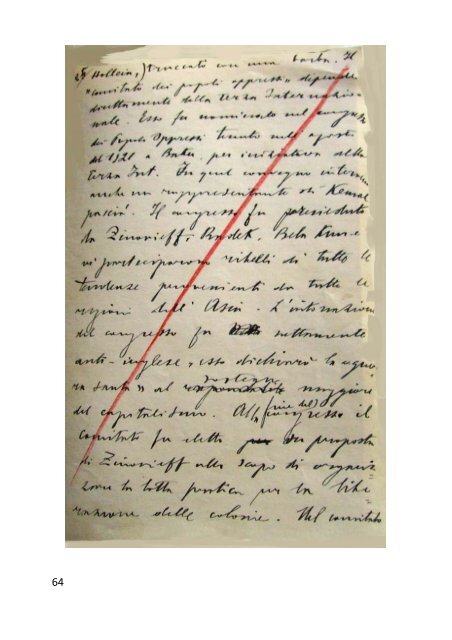 Hollein,) truccato con una barba. Il
"comitato dei popoli oppressi" dipende
direttamente dalla terza Internazio-
nale. Esso fu nominato nel congresso
dei Popoli Oppressi tenuto nell'agosto
del 1921 a Baku per iniziativa della
terza Int. In quel convegno intervenne
anche un rappresentante di Kemal
pascià. Il congresso fu presieduto
da Zinovieff, Radek, Bela Kun e
vi parteciparono ribelli di tutte le
tendenze provenienti da tutte le
regioni dell'Asia. L'intonazione
del congresso fu nettamente
anti-inglese, esso dichiarò la "guer-
ra santa" al sostegno maggiore
del capitalismo. Alla fine del congresso il
Comitato fu eletto su proposta
di Zinovieff allo scopo di organiz-
zare la lotta pratica per la libe-
razione delle colonie. Nel comitato
64